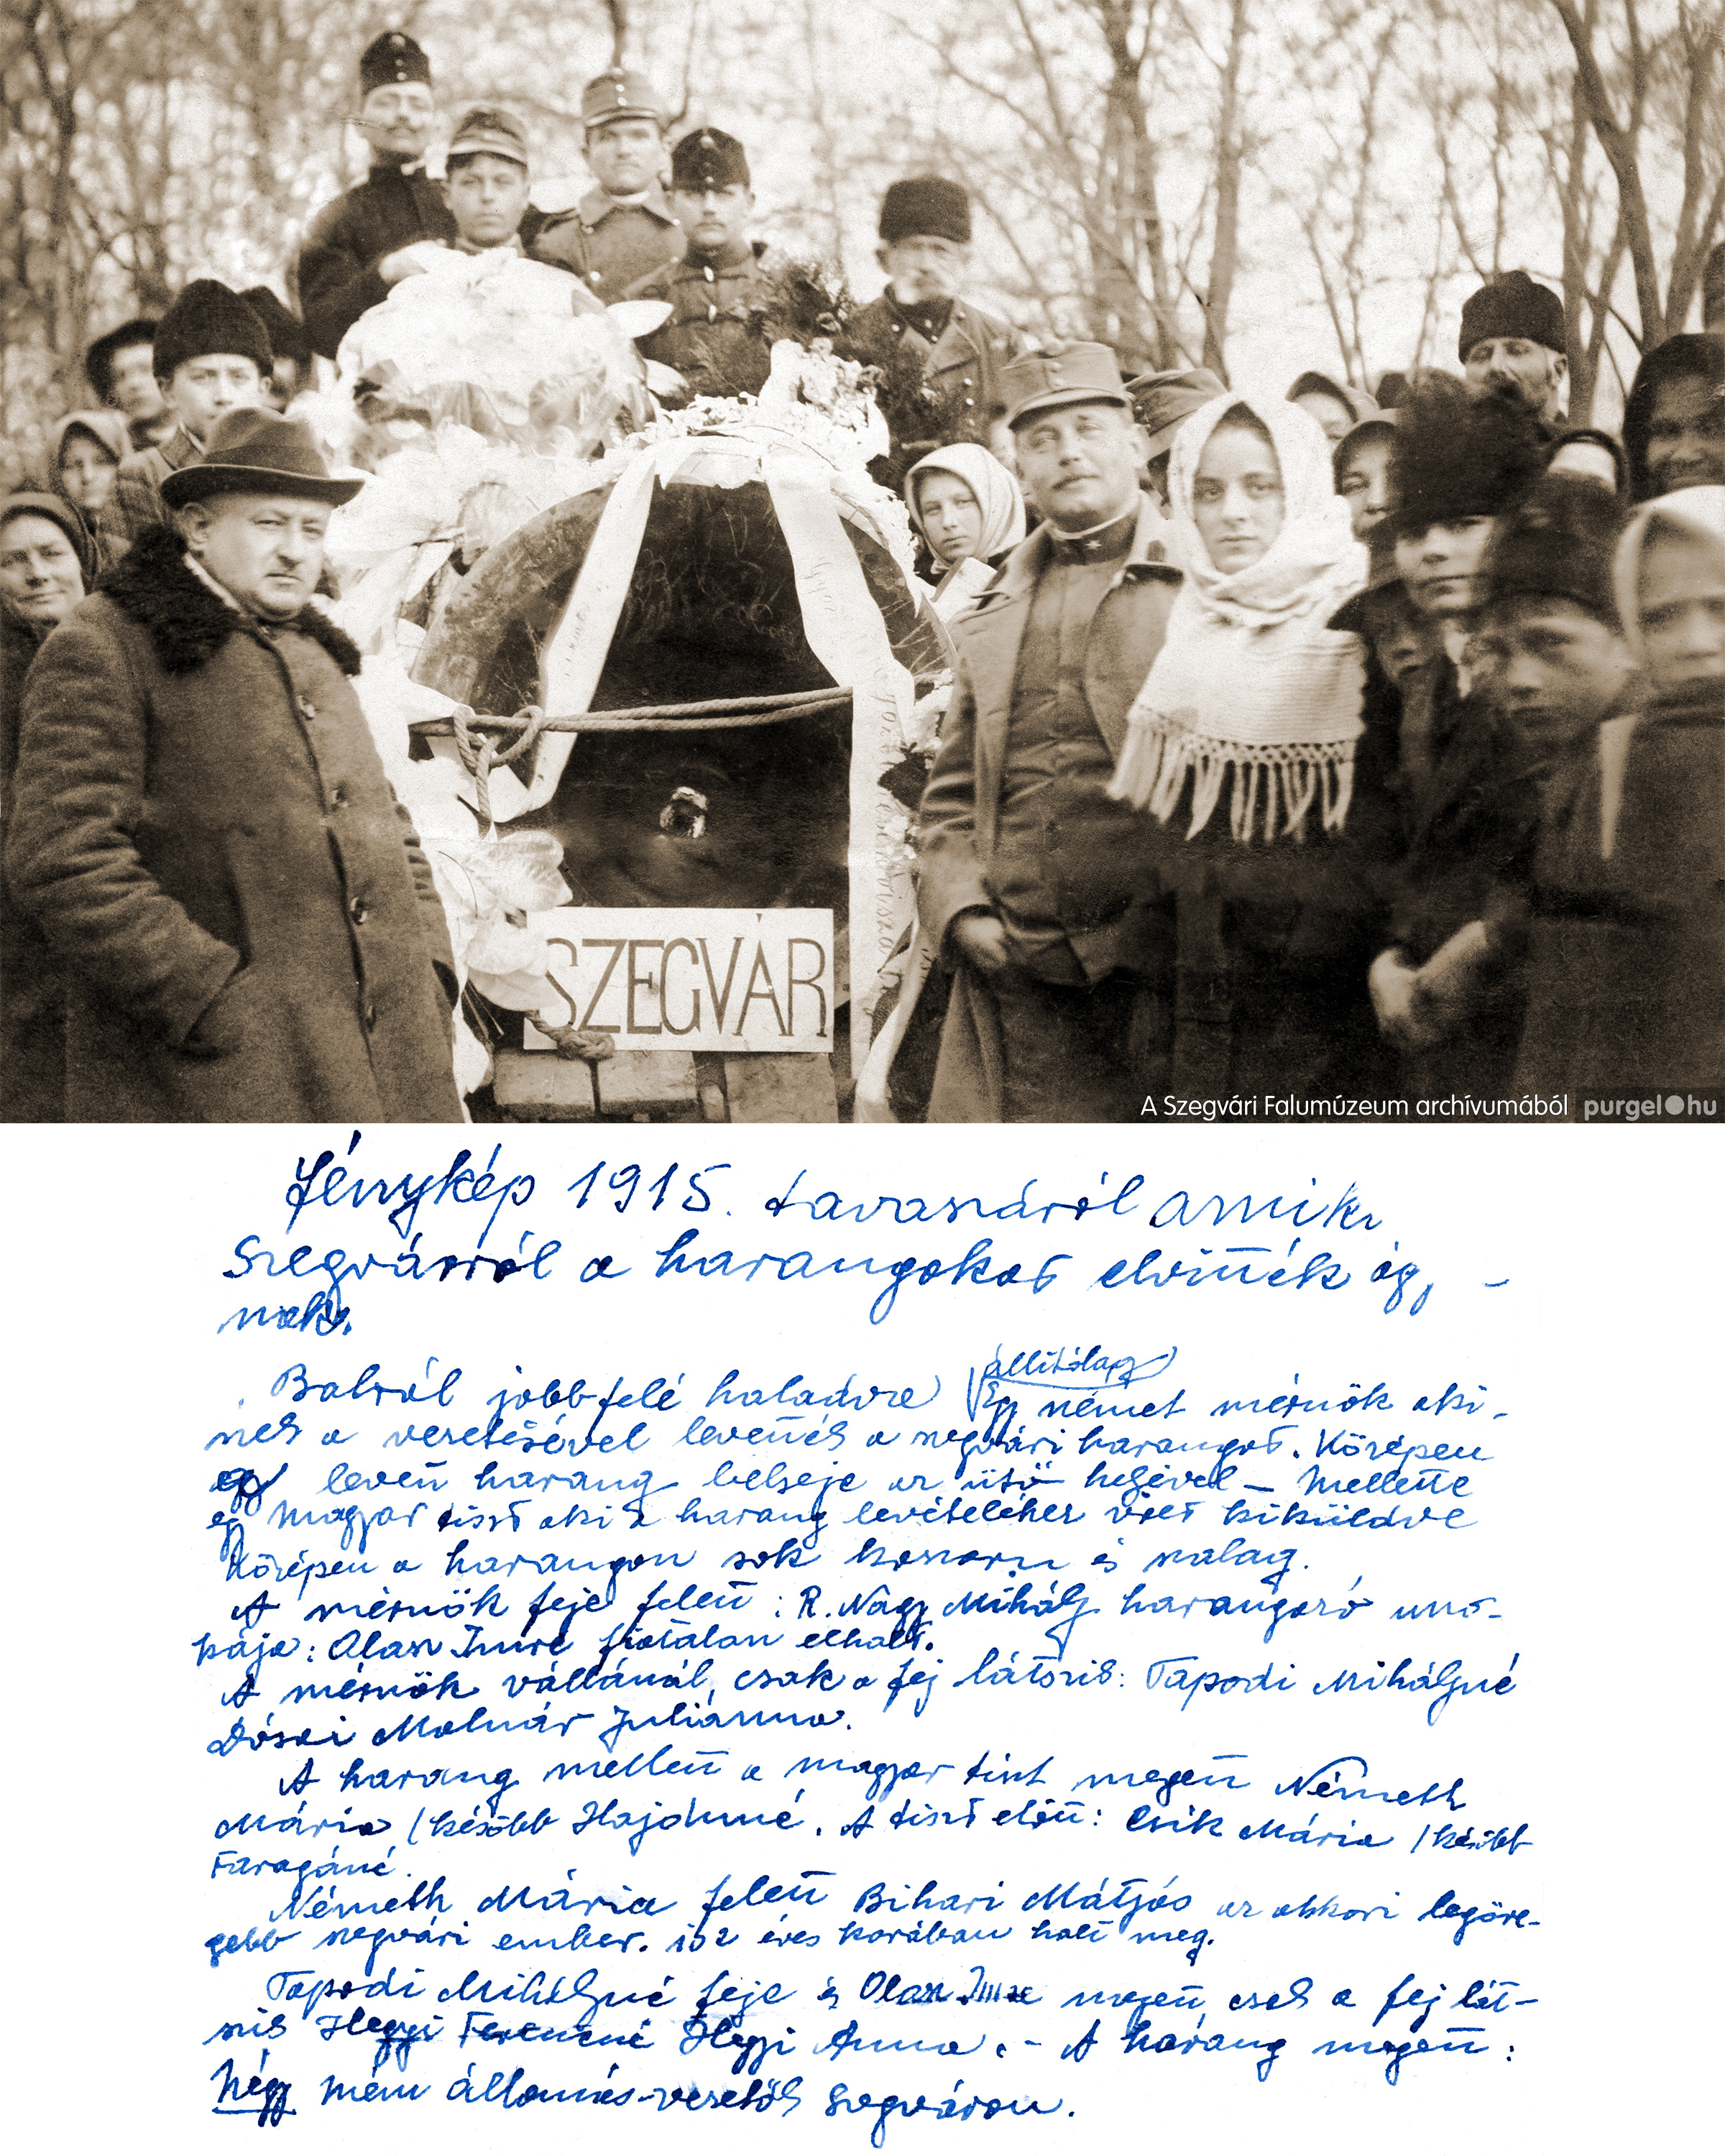 SZEGVÁR
A Szegvári Falumúzeum archívumából purgel hu
Fénykép 1915. tavaszáról amikor
Szegvárról a harangokat elvitték ágy -
nak.
állítólag
Balról jobbfelé haladva Egy német mérnök aki-
nek a vezetésével levették a szegvári harangot. Középen
egy levett harang belseje az ütő helyével – Mellette
egy magyar tiszt aki a harang levételéhez volt kiküldve
Középen a harangon sok koszorú és szalag.
A mérnök feje felett: R. Nagy Mihály harangozó uno-
kája: Olasz Imre fiatalan elhalt.
A mérnök vállánál, csak a fej látszik: Tapodi Mihályné
Dósai Molnár Juliánna.
A harang mellett a magyar tiszt megett Németh
Mária (később Hajdúné. A tiszt előtt: Csik Mária /később
Faragóné.
Németh Mária felett Bihari Mátyás az akkori legöre-
gebb szegvári ember. 102 éves korában halt meg.
Tapodi Mihályné feje és Olasz Imre megett csak a fej lát-
szik Hegyi Ferencné Hegyi Anna. - A harang megett:
Négy mém állomás-vezetők Szegváron.